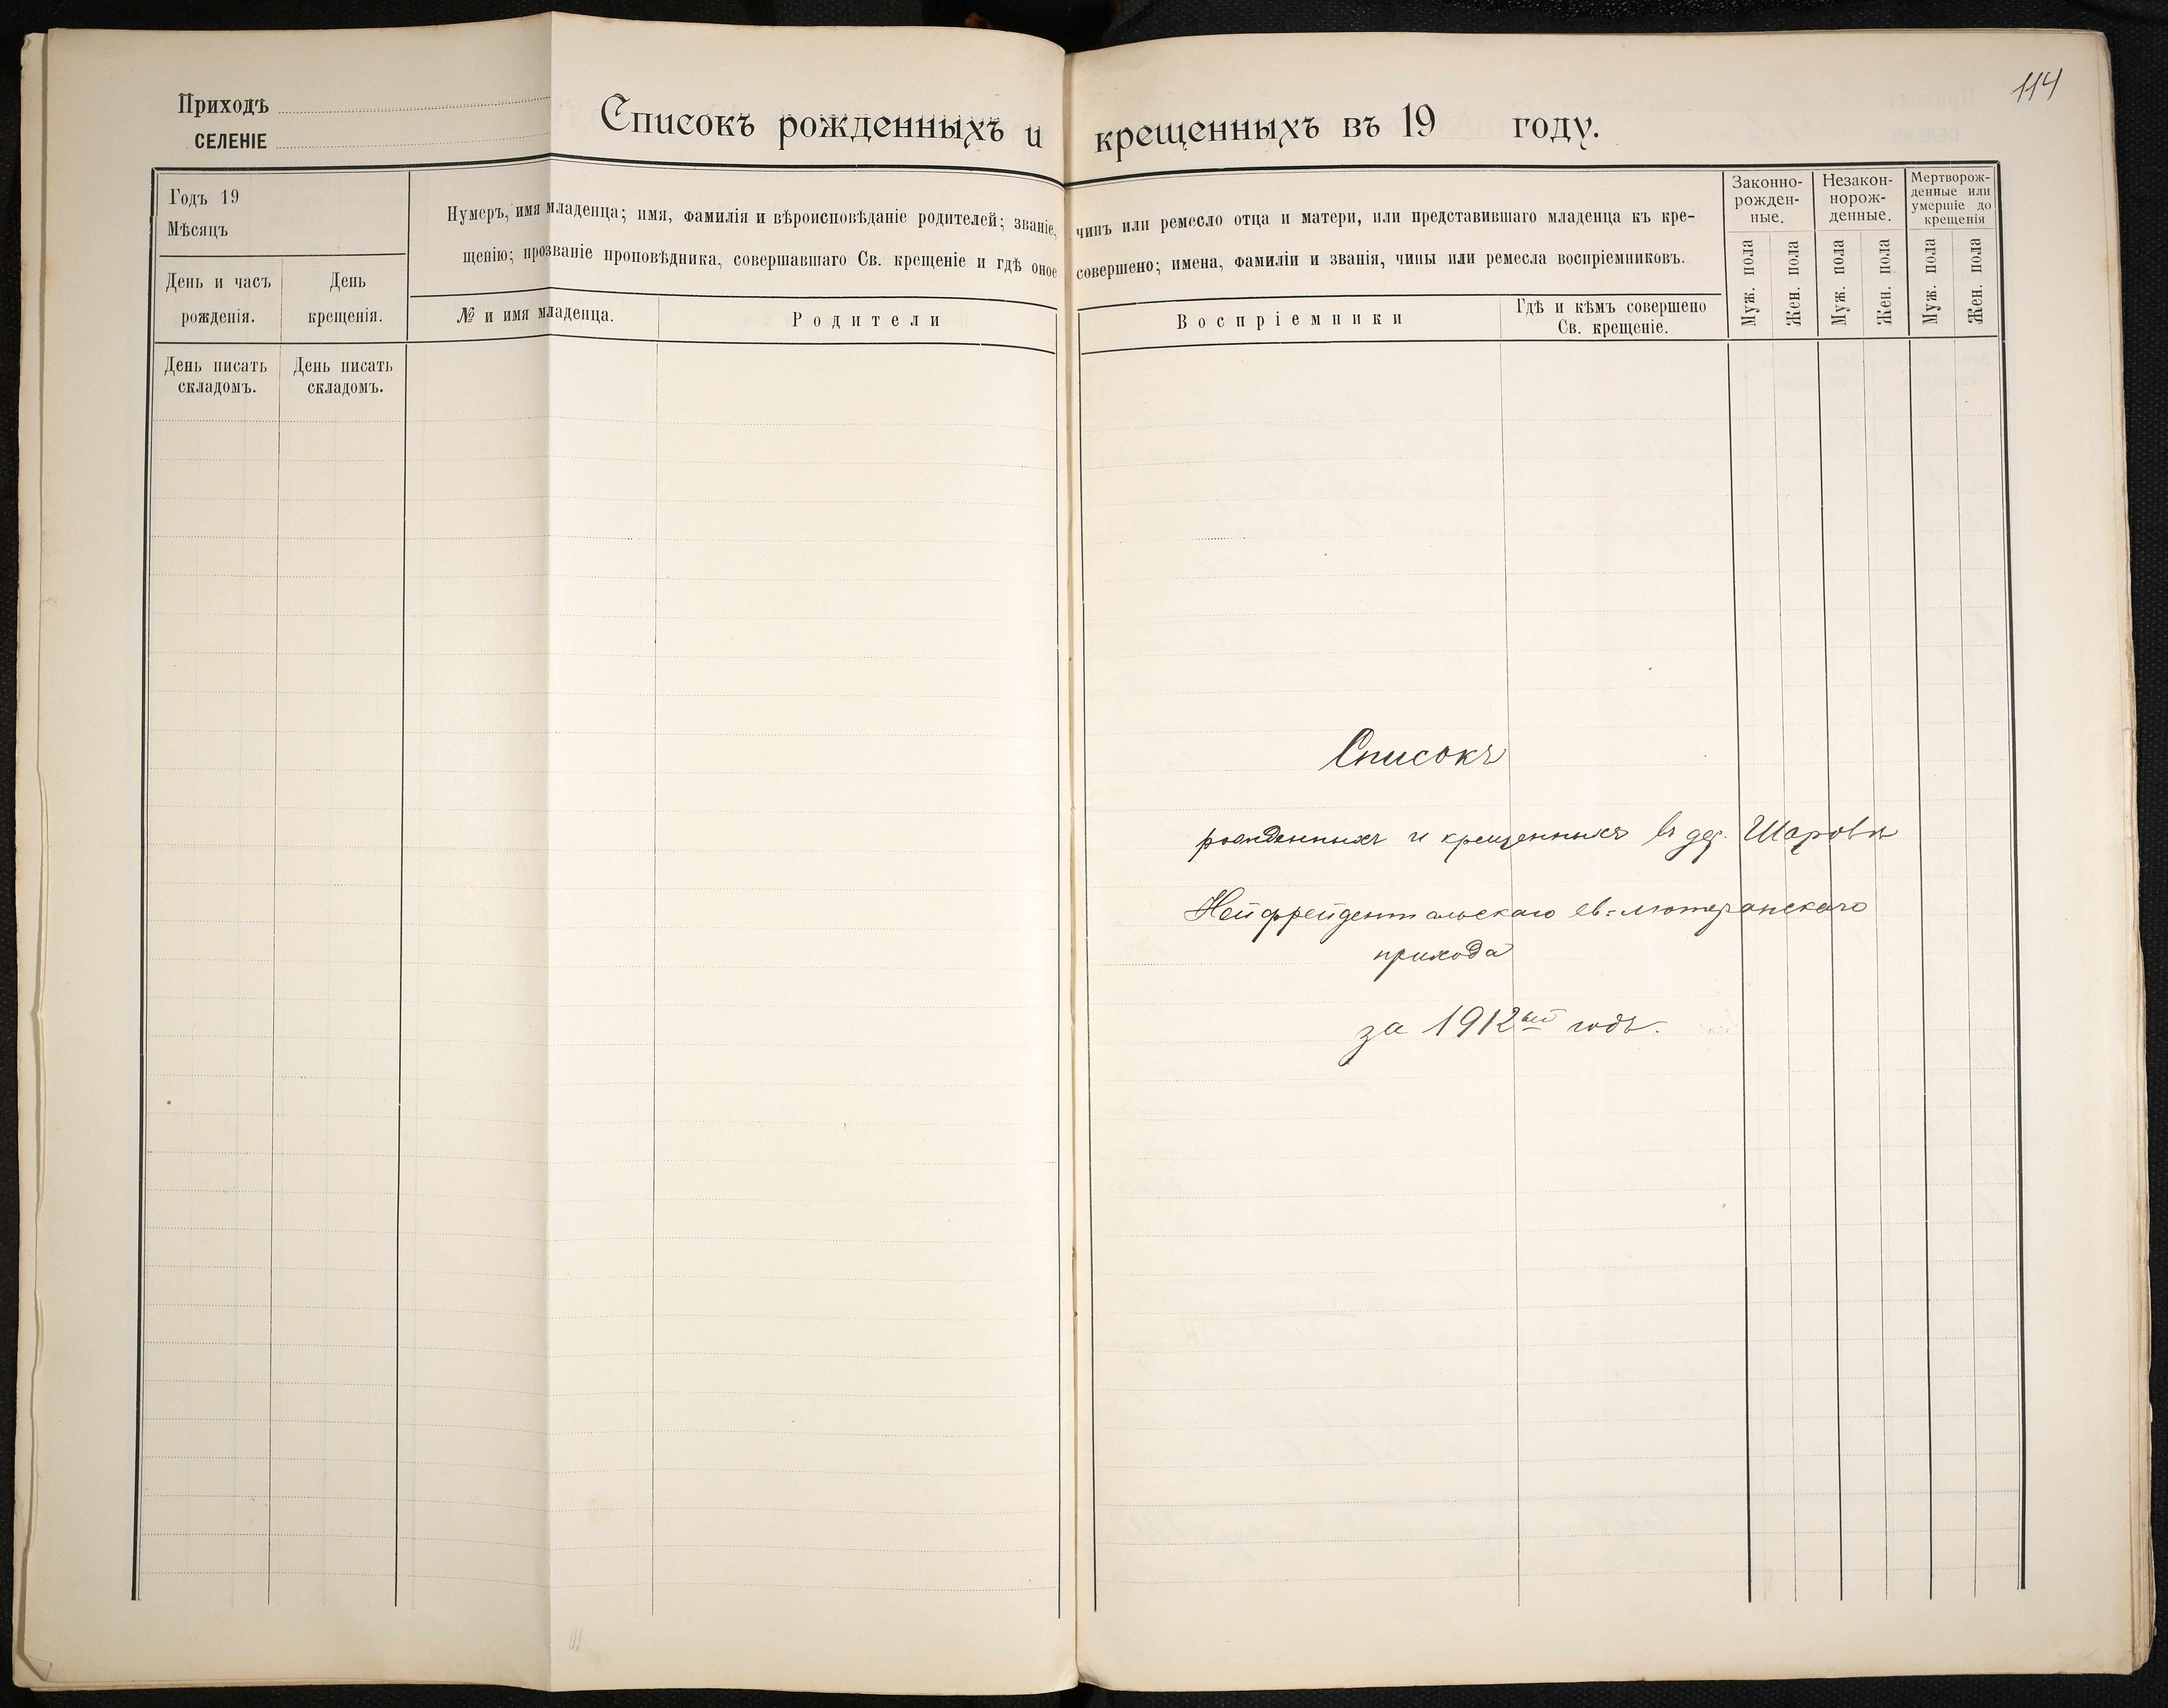 114
Приходъ
СЕЛЕНІЕ
Списокъ рожденныхъ и крещенныхъ въ 19 году.
Годъ 19
Мѣсяцъ
День и часъ рожденія.
День крещенія.
Нумеръ, имя младенца; имя, фамилія и вѣроисповѣданіе родителей; званіе, чинъ или ремесло отца и матери, или представившаго младенца къ кре-
щенію; прозваніе проповѣдника, совершавшаго Св. крещеніе и гдѣ оное совершено; имена, фамиліи и званія, чины или ремесла воспріемниковъ.
№ и имя младенца.
Родители
Воспріемники
Гдѣ и кѣмъ совершено
Св. крещеніе.
Законно-
рожден-
ные.
Незакон-
норож-
денные.
Мертворож-
денные или
умершіе до
крещенія
Муж. пола
Жен. пола
Муж. пола
Жен. пола
Муж. пола
Жен. пола
День писать
складомъ.
День писать
складомъ.
Списокъ
рожденныхъ и крещенныхъ въ дер. Шарова
Нейфрейдентальскаго ев=лютеранскаго
прихода
за 1912ый годъ.